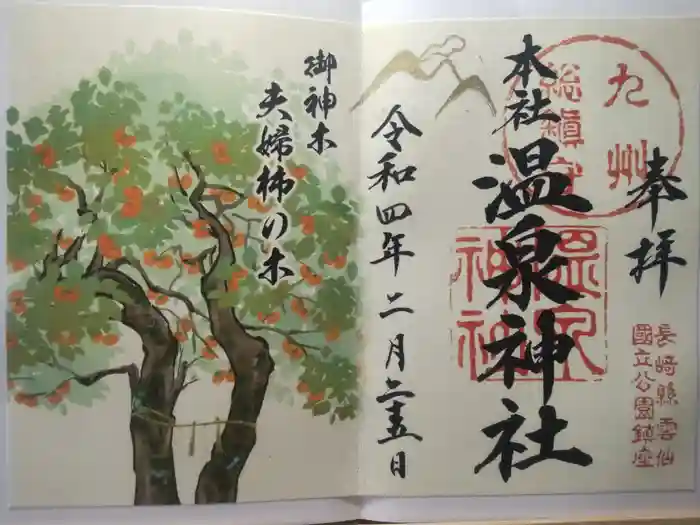 奉拝
九州
総鎮守
本社 温泉神社
温泉
神社
長崎縣雲仙
國立公園鎮座
令和四年二月二十五日
御神木
夫婦柿の木